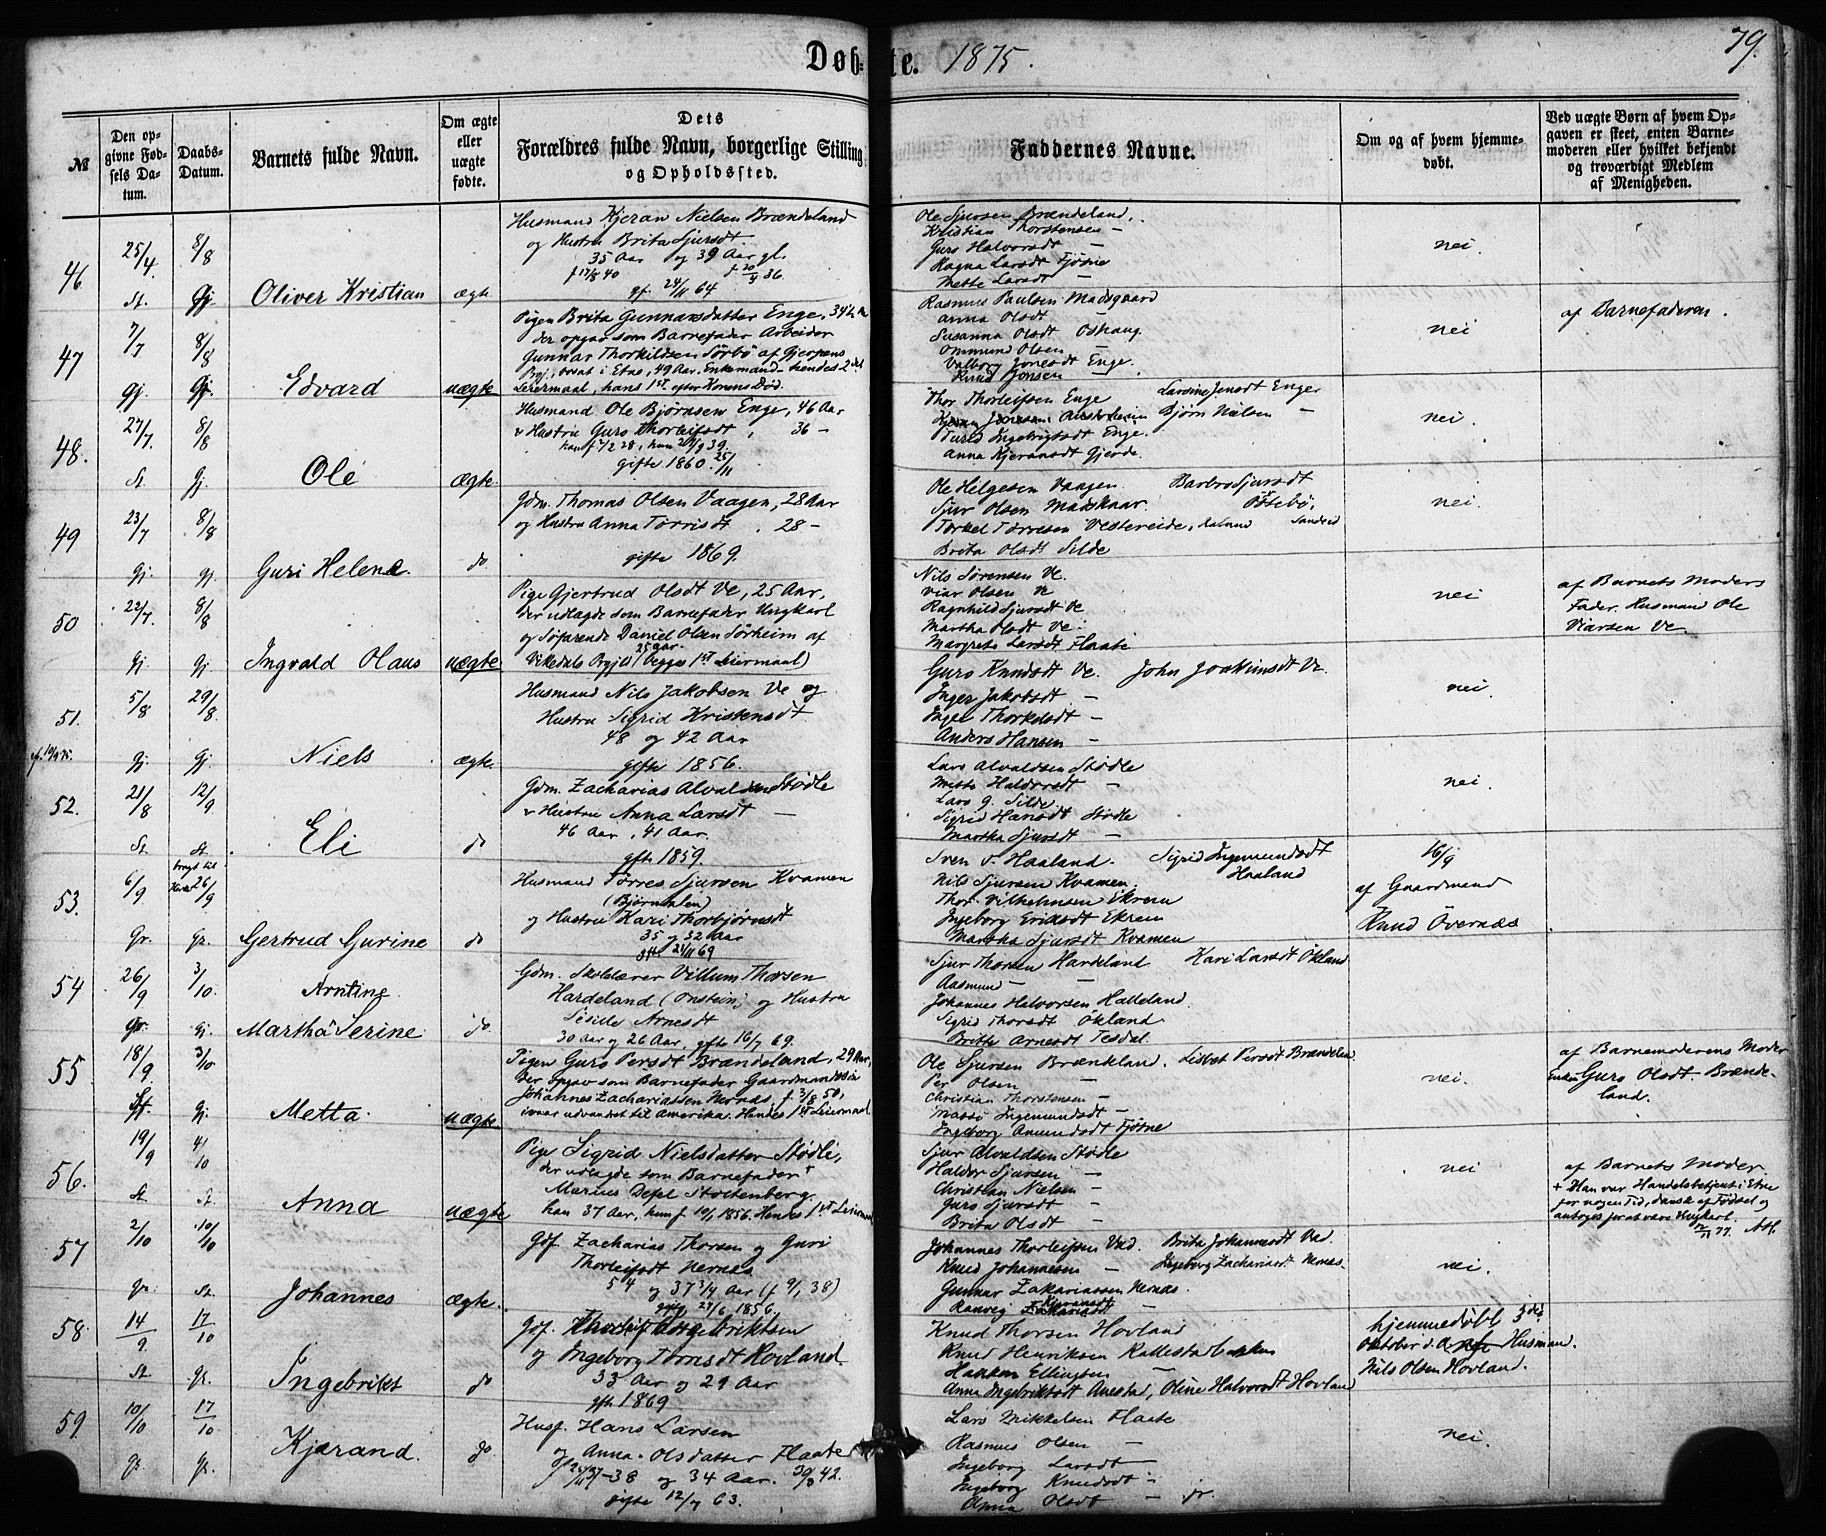 Døbte. 1875.
79.
№
Den opgivne Fødsels Datum.
Daabs-Datum.
Barnets fulde Navn.
Om ægte eller uægte fødte.
Dets Forældres fulde Navn, borgerlige Stilling og Opholdssted.
Faddernes Navne.
Om og af hvem hjemmedøbt.
Ved uægte Børn af hvem Opgaven er skeet, enten Barnemoderen eller hvilket bekjendt og troværdigt Medlem af Menigheden.
46
25/4.
8/8
St.
Gj.
Oliver Kristian
ægte
Husmand Kjeran Nielsen Brændeland
og Hustru Brita Sjursdt.
35 Aar og 39 Aar gl.
gf. 24/11 64
Ole Sjursen Brændeland,
Kristian Thorstensen —
Guro Halvorsdt —
Ragna Larsdt Fjøsne
Mette Larsdt —
nei
47
7/7
8/8
gj.
gj.
Edvard
uægte
Pigen Brita Gunnarsdatter Enge,
der opgav som Barnefader Arbeider
Gunnar Thorkildsen Sørbø af Gjerpens
Pgj., bosat i Etne, 49 Aar. Enkemand. hendes 2det
Leiermaal, hans 1st. efter Konens Død.
Rasmus Paulsen Madsgaard
Anna Olsdt
Susanna Olsdt Oshaug
Ommund Olsen —
Valborg Jonesdt Enge.
Knud Jonsen —
nei
af Barnefaderen.
48.
27/7.
8/8
St.
gj.
Ole
ægte
Husmand Ole Bjørnsen Enge, 46 Aar
& Hustru Guro Thorleifsdt, 36 —
gifte 1860. 25/11
Thor Thorleifsen Enge
Bjørn Nielsen —
Anna Kjeransdt Gjerde.
nei.
49
23/7
8/8
gj.
gj.
Guri Helene.
do
Gdm. Thomas Olsen Vaagen, 28 Aar
og Hustru Anna Torrisdt. 28 —
gifte 1869.
Ole Helgesen Vaagen. Barbro Sjursdt
Sjur Olsen Madskaar Østebø,
Brita Olsdt Silde
nei.
50
22/7.
8/8
gj.
gj.
Ingvald Olaus
uægte
Pige Gjertrud Olsdt Ve, 25 Aar,
der udlagde som Barnefader Ungkarl
og Søfarende Daniel Olsen Sørheim af
25 Aar.
Vikedals Prgjld (begges 1st Leiermaal)
Nils Sørensen Ve.
Viar Olsen Ve
Ragnhild Sjursdt Ve
Martha Olsdt Ve
Margrete Larsdt Flaate
nei
af Barnets Moders
Fader. Husmand Ole
Viarsen Ve.
51.
5/8
29/8.
gj.
gj.
Niels
ægte.
Husmand Nils Jakobsen Ve og
Hustru Sigrid Kristensdt
48 og 42 Aar
gifte 1856.
Guro Knudsdt Ve. John Joakimsdt Ve.
Inger Jakobsdt —
Inger Thorkelsdt —
Anders Hansen —
nei.
52.
21/8
12/9
St.
St.
Eli
do
Gdm. Zacharias Alvaldsen Stødle
& Hustru Anna Larsdt —
46 Aar, 41 Aar.
gfte 1859.
Lars Alvaldsen Stødle
Mette Haldorsdt —
Lars G. Silde.
Sigrid Hansdt Stødle
Martha Sjursdt —
nei.
53.
6/9.
26/9
Gr.
Gr.
Gertrud Gurine
do
Husmand Tørres Sjursen Kvamen
og Hustru Kari Thorbjørnsdt
35 og 32 Aar
gfte 24/11 69
Sven S. Haaland. Sigrid Ingemundsdt
Haaland
Nils Sjursen Kvamen
Thor. Vilhelmsen Ekrem
Ingeborg Eriksdt Ekrem
Martha Sjursdt Kvamen
16/9
af Gaardmand
Knud Øvernæs
54
26/9
3/10.
gr.
gj.
Arntine.
Martha Serine
do.
Gdm. Skolelærer Villum Thorsen
Hardeland (Onstein) og Hustru
Sisile Arnesdt
30 Aar og 26 Aar, gfte 16/7 69.
Sjur Thorsen Hardeland Kari Larsdt Økland
Aasmund — —
Johannes Halvorsen Halleland.
Sigrid Thorsdt Økland.
Britte Arnesdt Tesdal.
55
18/9
3/10
St.
gj.
Metta.
uægte
Pigen Guro Persdt Brændeland, 29 Aar,
der opgav som Barnefader Gaardmandssøn
Johannes Zachariassen Nernæs, f. 3/8 50,
ivaar udvandret til Amerika. Hendes 1st Leiermaal
Ole Sjursen Brændeland. Lisbet Persdt Brændeland
Per Olsen —
Christian Thorstensen —
Ingemundsdt —
Ingeborg Amundsdt Fjøsne
nei.
af Barnemoderens Moder
Enken Guro Olsdt. Brændeland.
56.
19/9
4/10
St.
St.
Anna
uægte
Pige Sigrid Nielsdatter Stødle,
der udlagde som Barnefader +
Marius Detel Stoltenberg.
han 37 Aar, hun f. 10/1 1856. Hendes 1st Leiermaal
Sjur Alvaldsen Stødle
Haldor Sjursen —
Christian Nielsen —
Guro Sjursdt —
Brita Olsdt —
nei
af Barnets Moder.
+ Han var Handelsbetjent i Etne
for nogen Tid, dansk af Fødsel og
antoges for at være Ungkarl.
57
2/10
10/10
gr.
St.
Johannes
ægte.
Gdf. Zacharias Thorsen og Guri
Thorleifsdt Nernæs
54 og 37 3/4 Aar (f 9/1 38)
gfte 24/6 1856.
Johannes Thorleifsen Vad. Brita Johannesdt Vad.
Knud Johannesen — Ingeborg Zachariasdt Nernæs.
Gunnar Zakariassen Nernæs.
Ranveig Kjeransdt —
nei.
58.
14/9.
17/10
St.
gr.
Ingebrikt
do
og Ingeborg Tørresdt Hovland.
33 Aar og 29 Aar
gfte 1869
Knud Thorsen Hovland
Knud Henriksen Kallestadbakken
Haakon Ellingsen —
Anna Ingebriktsdt Anestad, Oline Halvorsdt Hovland
hjemmedøbt 3die
Oktober d. A. af Husmand.
Nils Olsen Hovland.
59.
10/10
17/10
gr.
gr.
Kjærand.
do
Husf. Hans Larsen
og Anna Olsdatter Flaate
38 og 34 Aar. 30/8 42.
gifte 12/7 63.
Lars Mikkelsen Flaate
Rasmus Olsen —
Ingeborg Larsdt —
Ingeborg Knudsdt —
Anna Olsdt — jr.
nei.